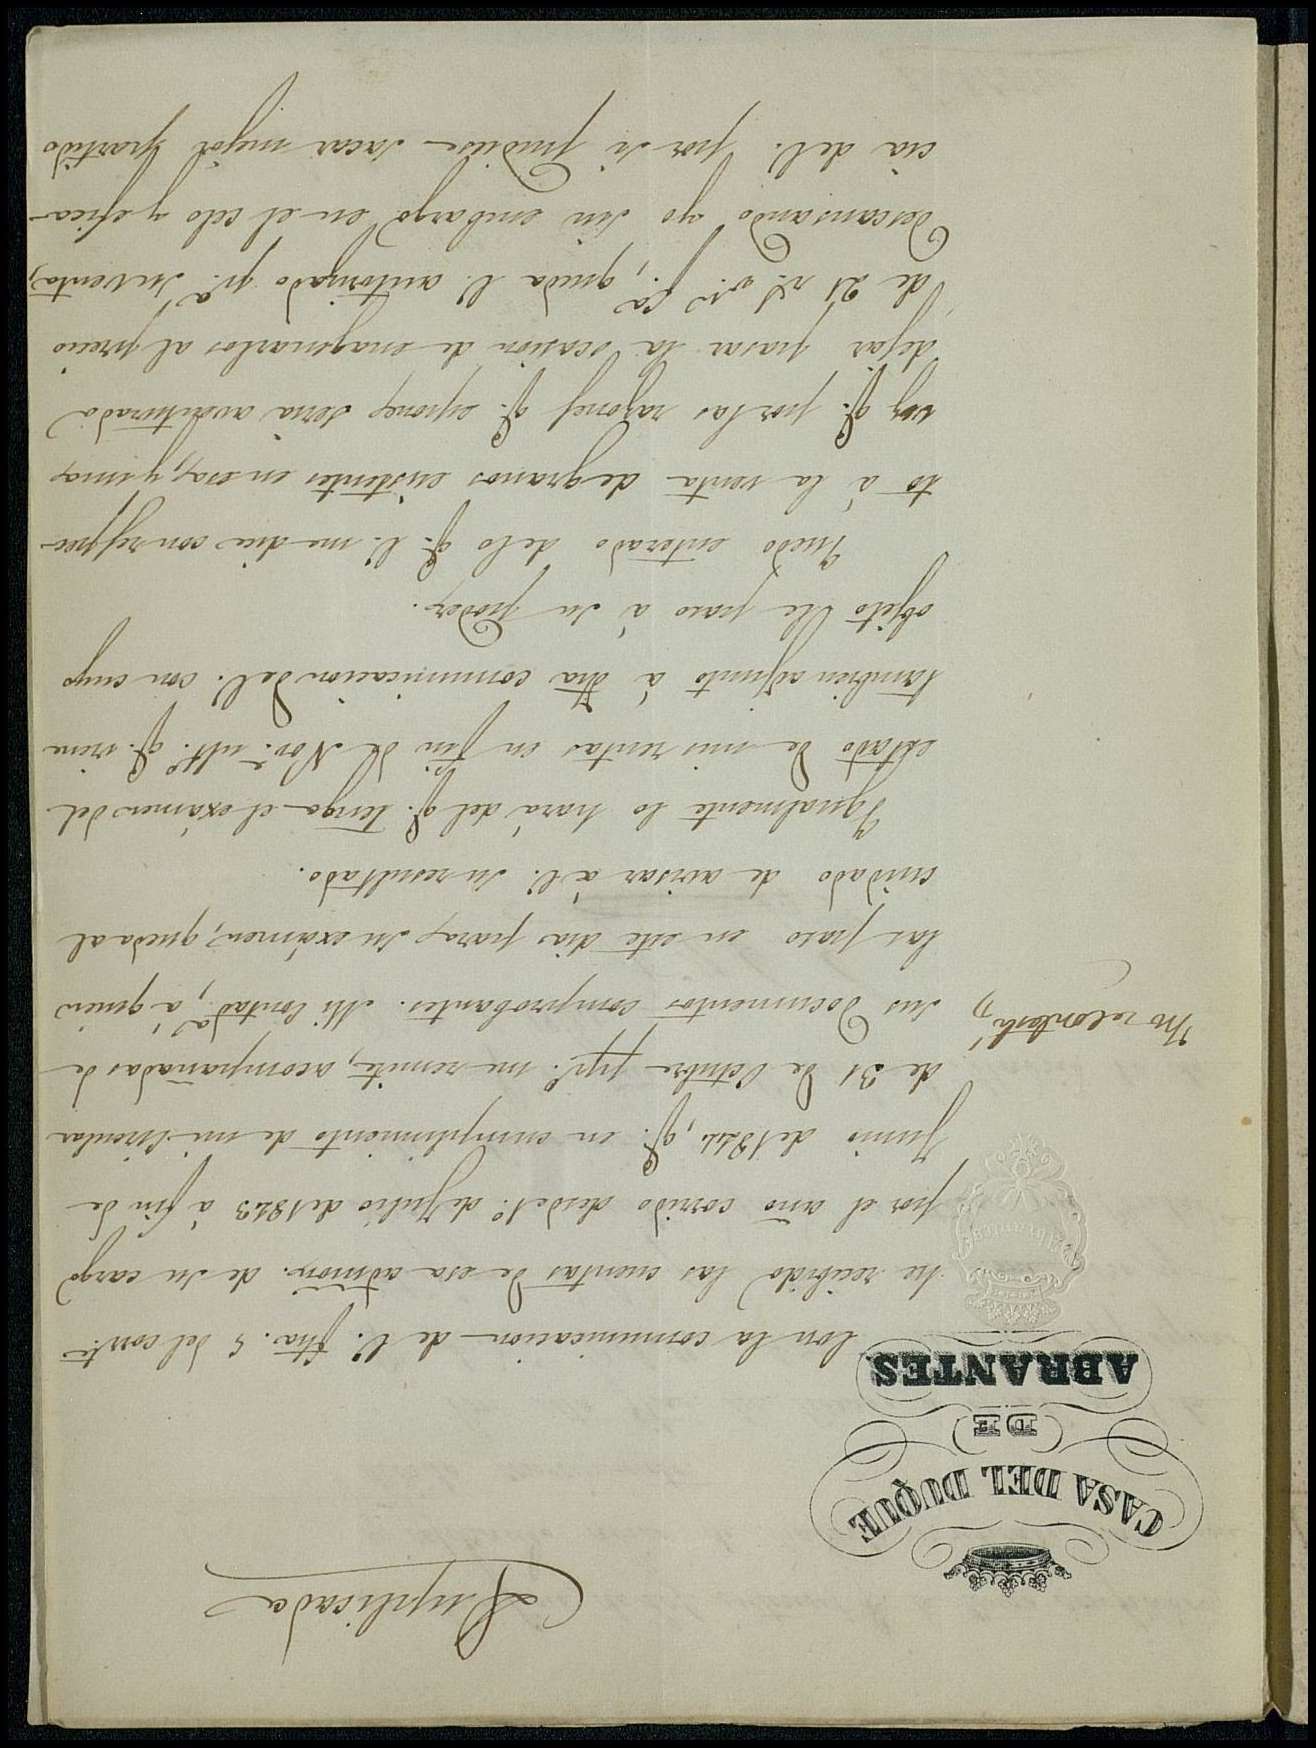 Duplicada
CASA DEL DUQUE
DE
ABRANTES
Con la comunicacion de V. fha. 5 del corrte.
he recibido las cuentas de esa admon. de su cargo
por el año corrido desde 1º de Julio de 1843 á fin de
Junio de 1844, qe. en cumplimiento de mi Circular
de 31 de Octubre ppº. me remite, acompañadas de
sus documentos comprobantes. Mi Contadª. á quien
No se contestó
las paso en este dia para su exámen, queda al
cuidado de avisar á V. su resultado.
Igualmente lo hará del qe. tenga el exámen del
estado de mis rentas en fin de Nove. ultº. qe. viene
tambien adjunto á dha comunicacion de V. con cuyo
objeto le paso á su poder.
Quedo enterado de lo qe. V. me dice con respec-
to á la venta de granos existentes en esa, y una
vez qe. por las razones qe. espone, seria aventurado
dejar pasar la ocasion de enagenarlos al precio
de 21 rs. vn. fª., queda V. autorizado pª. su venta,
descansando yo sin embargo en el celo y efica-
cia de V. por si pudiese sacar mejor partido